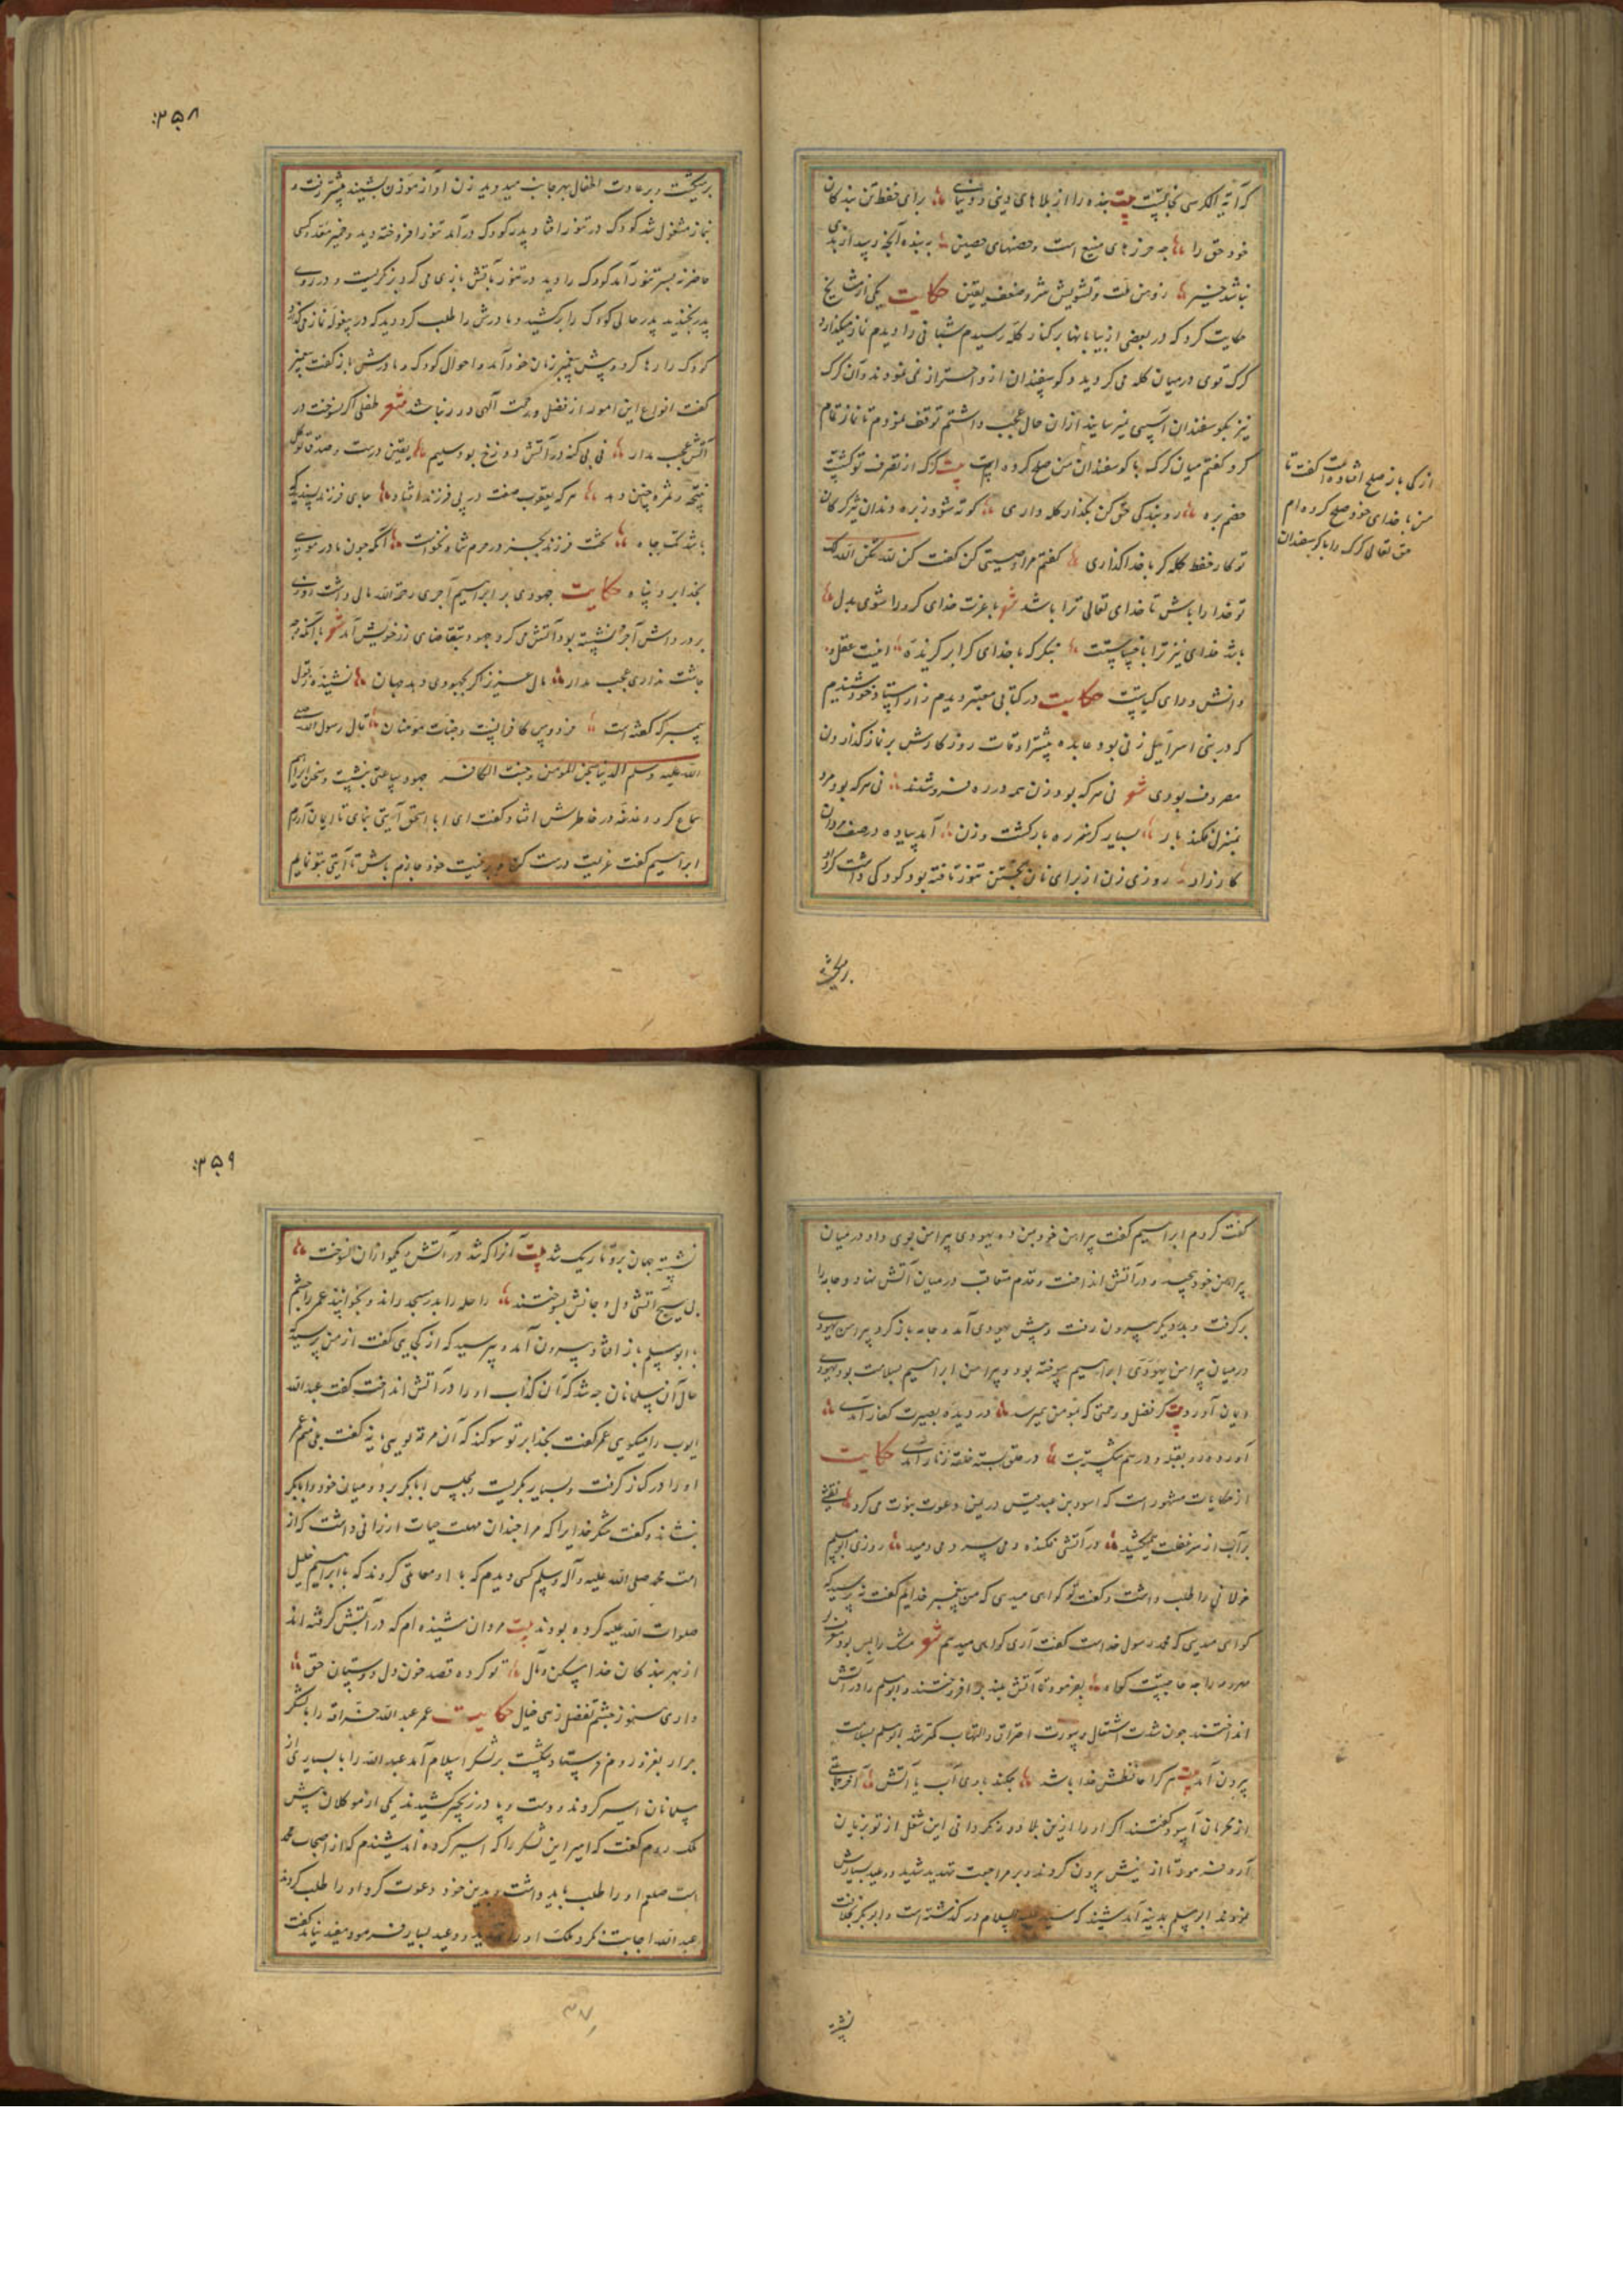 که آیة الکرسی نجاتست بیت بنده را از بلاهای دینی و دنیایی برای حفظ تن بندکان
خود حق را چه حرزهای منیع است و حصنهای حصین به بنده آنچه رسد از بدی
نباشد خیر ز وهن ملت و تشویش شر و ضعف یقین حکایت یکی از مشایخ
حکایت کرد که در بعضی از بیابانها بر کنار کله رسیدم شبانی را دیدم نماز میکذارد
کرک قوی در میان کله می کردید و کوسفندان از و احتراز نمی نمودند و آن کرک
نیز بکوسفندان آسیبی نمیرسانید از ان حال عجب داشتم توقف نمودم تا نماز تمام
کرد کفتم میان کرک با کوسفندان من صلح کرده ایم بیت کرک از تصرف تو کشت
خصم بره رو بندکی حق کن بکذار کله داری کوته شود ز بره دندان تیز کرکان
تو کار حفظ کله کر با خدا کذاری کفتم مرا وصیتی کن کفت کن لله یکن الله لک
تو خدا را باش تا خدای تعالی ترا باشد شعر با عزت خدای کرو را شوی بدل
باشد خدای نیز ترا با خساست بنکر که با خدای کرا بر کزیده اینت عقل و
دانش و رای کیاست حکایت در کتابی معتبر دیدم و از استاد خود شنیدم
که در بنی اسرائیل زنی بود عابده بیشتر اوقات روزکارش بر نماز کذاردن
مصروف بودی شعر نی هر که بود زن همه در ره فروشدند نی هر که بود مرد
بمنزل فکند بار بسیار کس ز ره بازکشت و زن آمد پیاده در صف مردان
کارزار روزی زن از برای نان پختن تنور تافته بود کودکی داشت کرد او
بر میکشت
از کی باز صلح افتاده است کفت تا
من با خدای خود صلح کرده ام
حق تعالی کرک را با کوسفندان
۳۵۸
بر میکشت و بر عادت اطفال بهر جانب میدوید زن آواز موذن بشنید پیشتر رفت و
بنماز مشغول شد کودک در تنور افتاد پدر کودک درآمد تنور افروخته دید و خمیر معد و کسی
حاضر نه بسر تنور آمد کودک را دید در تنور با آتش بازی می کرد بنکریست و در روی
پدر بخندید پدر حالی کودک را برکشید و مادرش را طلب کرد دید که در بیغوله نماز می کذارد
کودک را رها کرد و پیش پیغمبر زمان خود آمد و احوال کودک و مادرش باز کفت پیغمبر
کفت انواع این امور از فضل و رحمت الهی دور نباشد شعر طفلی اکر نسوخت در
آتش عجب مدار نی بی کنه در آتش دوزخ بود سلیم یقین درست و صدق توکل
نتیجه و ثمره چنین دهد هر که یعقوب صفت در پی فرزند افتاد جای فرزند پسندیده
باشد تک چاه تخت فرزند بجز در حرم شاه نخواست آنکه چون مادر موسی
بخدا برد پناه حکایت جهودی بر ابراهیم آجری رحمة الله مالی داشت روزی
بر در داش آجر نشسته بود و آتش می کرد جهود بتقاضای زر خویش آمد شعر با آنکه وجه
جست نداری عجب مدار مال عزیز اکر بجهودی دهد جهان نشنیده رسول
پیمبر که کفته است فردوس کافرانست و جنات مومنان قال رسول الله صلی
الله علیه وسلم الدنیا سجن المومن و جنت الکافر جهود ساعتی بنشست و سخن ابراهیم
سماع کرد دغدغه در خاطرش افتاد کفت ای ابا اسحق آیتی بنمای تا ایمان آورم
ابراهیم کفت عزیمت درست کن و بر نیت خود جازم باش تا آیتی بتو نمایم
کفت کردم ابراهیم کفت پیراهن خود بمن ده یهودی پیراهن بوی داد در میان
پیراهن خود پیچید و در آتش انداخت و قدم متعاقب در میان آتش نهاد و جامه را
برکرفت و بدر دیکر بیرون رفت و پیش یهودی آمد و جامه باز کرد پیراهن یهودی
در میان پیراهن یهودی ابراهیم سوخته بود و پیراهن ابراهیم بسلامت بود یهودی
ایمان آورد بیت کر فضل و رحمتی که بمومن همی رسد در دیده بصیرت کفار آمدی
آورده رو بقبله و در هم شکسته بت در حلق بسته حلقه زنار آمدی حکایت
از حکایات مشهور است که اسود بن عبد قیس در یمن دعوت نبوت می کرد نقشی
بر آب از سر غفلت همی کشید در آتشی فکنده دمی سرد می دمید روزی ابومسلم
خولانی را طلب داشت و کفت تو کواهی میدهی که من پیغمبر خدایم کفت نه پرسید که
کواهی میدهی که محمد رسول خداست کفت آری کواهی میدهم شعر مشک را بس بود
مهر و مه را چه حاجتست کواه بفرمود تا آتش بلند بر افروختند و ابومسلم را در آتش
انداختند چون شدت اشتعال و سورت احتراق و التهاب کمتر شد ابومسلم بسلامت
بیرون آمد بیت هر کرا حافظش خدا باشد چکند با وی آب یا آتش آخر جماعتی
از محرمان اسود کفتند اکر او را ازین بلاد دور نکردانی این شغل از تو بزیان
آرد فرمود تا از پیش بیرون کردند و بر مراجعت تهدید شدید و وعید بسیارش
نمودند ابومسلم بمدینه آمد شنید که سید علیه السلام در کذشته است و ابوبکر بخلافت
نشسته
۳۵۹
نشسته جهان برو تاریک شد بیت آنرا که شد در آتش و یکمو ازان نسوخت
بی هیچ آتشی دل و جانش بسوختند راحله را بدر مسجد راند و بخوابانید عمر را چشم
بابومسلم باز افتاد بیرون آمد و پرسید که از کجایی کفت از یمن پرسید که
حال آن مسلمانان چه شد که آن کذاب او را در آتش انداخت کفت عبدالله
ایوب را میکویی عمر کفت بخدا بر تو سوکند که آن مرد تویی یا نه کفت بلی منم عمر
او را در کنار کرفت و بسیار بکریست و بمجلس ابابکر برد و میان خود و ابابکر
بنشاند و کفت شکر خدا یرا که مرا چندان مهلت حیات ارزانی داشت که از
امت محمد صلی الله علیه و آله وسلم کسی دیدم که با او معاملتی کردند که با ابراهیم خلیل
صلوات الله علیه کرده بودند بیت مردان شنیده ام که در آتش کرفته اند
از بهر بندکان خدا مسکن و مآل تو کرده قصد خون دل دوستان حق
داری هنوز چشم تفضل زهی خیال حکایت عمر عبدالله حذافه را با لشکر
جرار بغزو روم فرستاد شکست بر لشکر اسلام آمد عبدالله را با بسیاری از
مسلمانان اسیر کردند و دست و پا در زنجیر کشیدند یکی از موکلان پیش
ملک روم کفت که امیر این لشکر را که اسیر کرده اند شنیدم که از اصحاب محمد
است صلعم او را طلب باید داشت و بدین خود دعوت کرد او را طلب کردند
عبدالله اجابت نکرد ملک او را تهدید و وعید بسیار فرمود مفید نیامد کفت